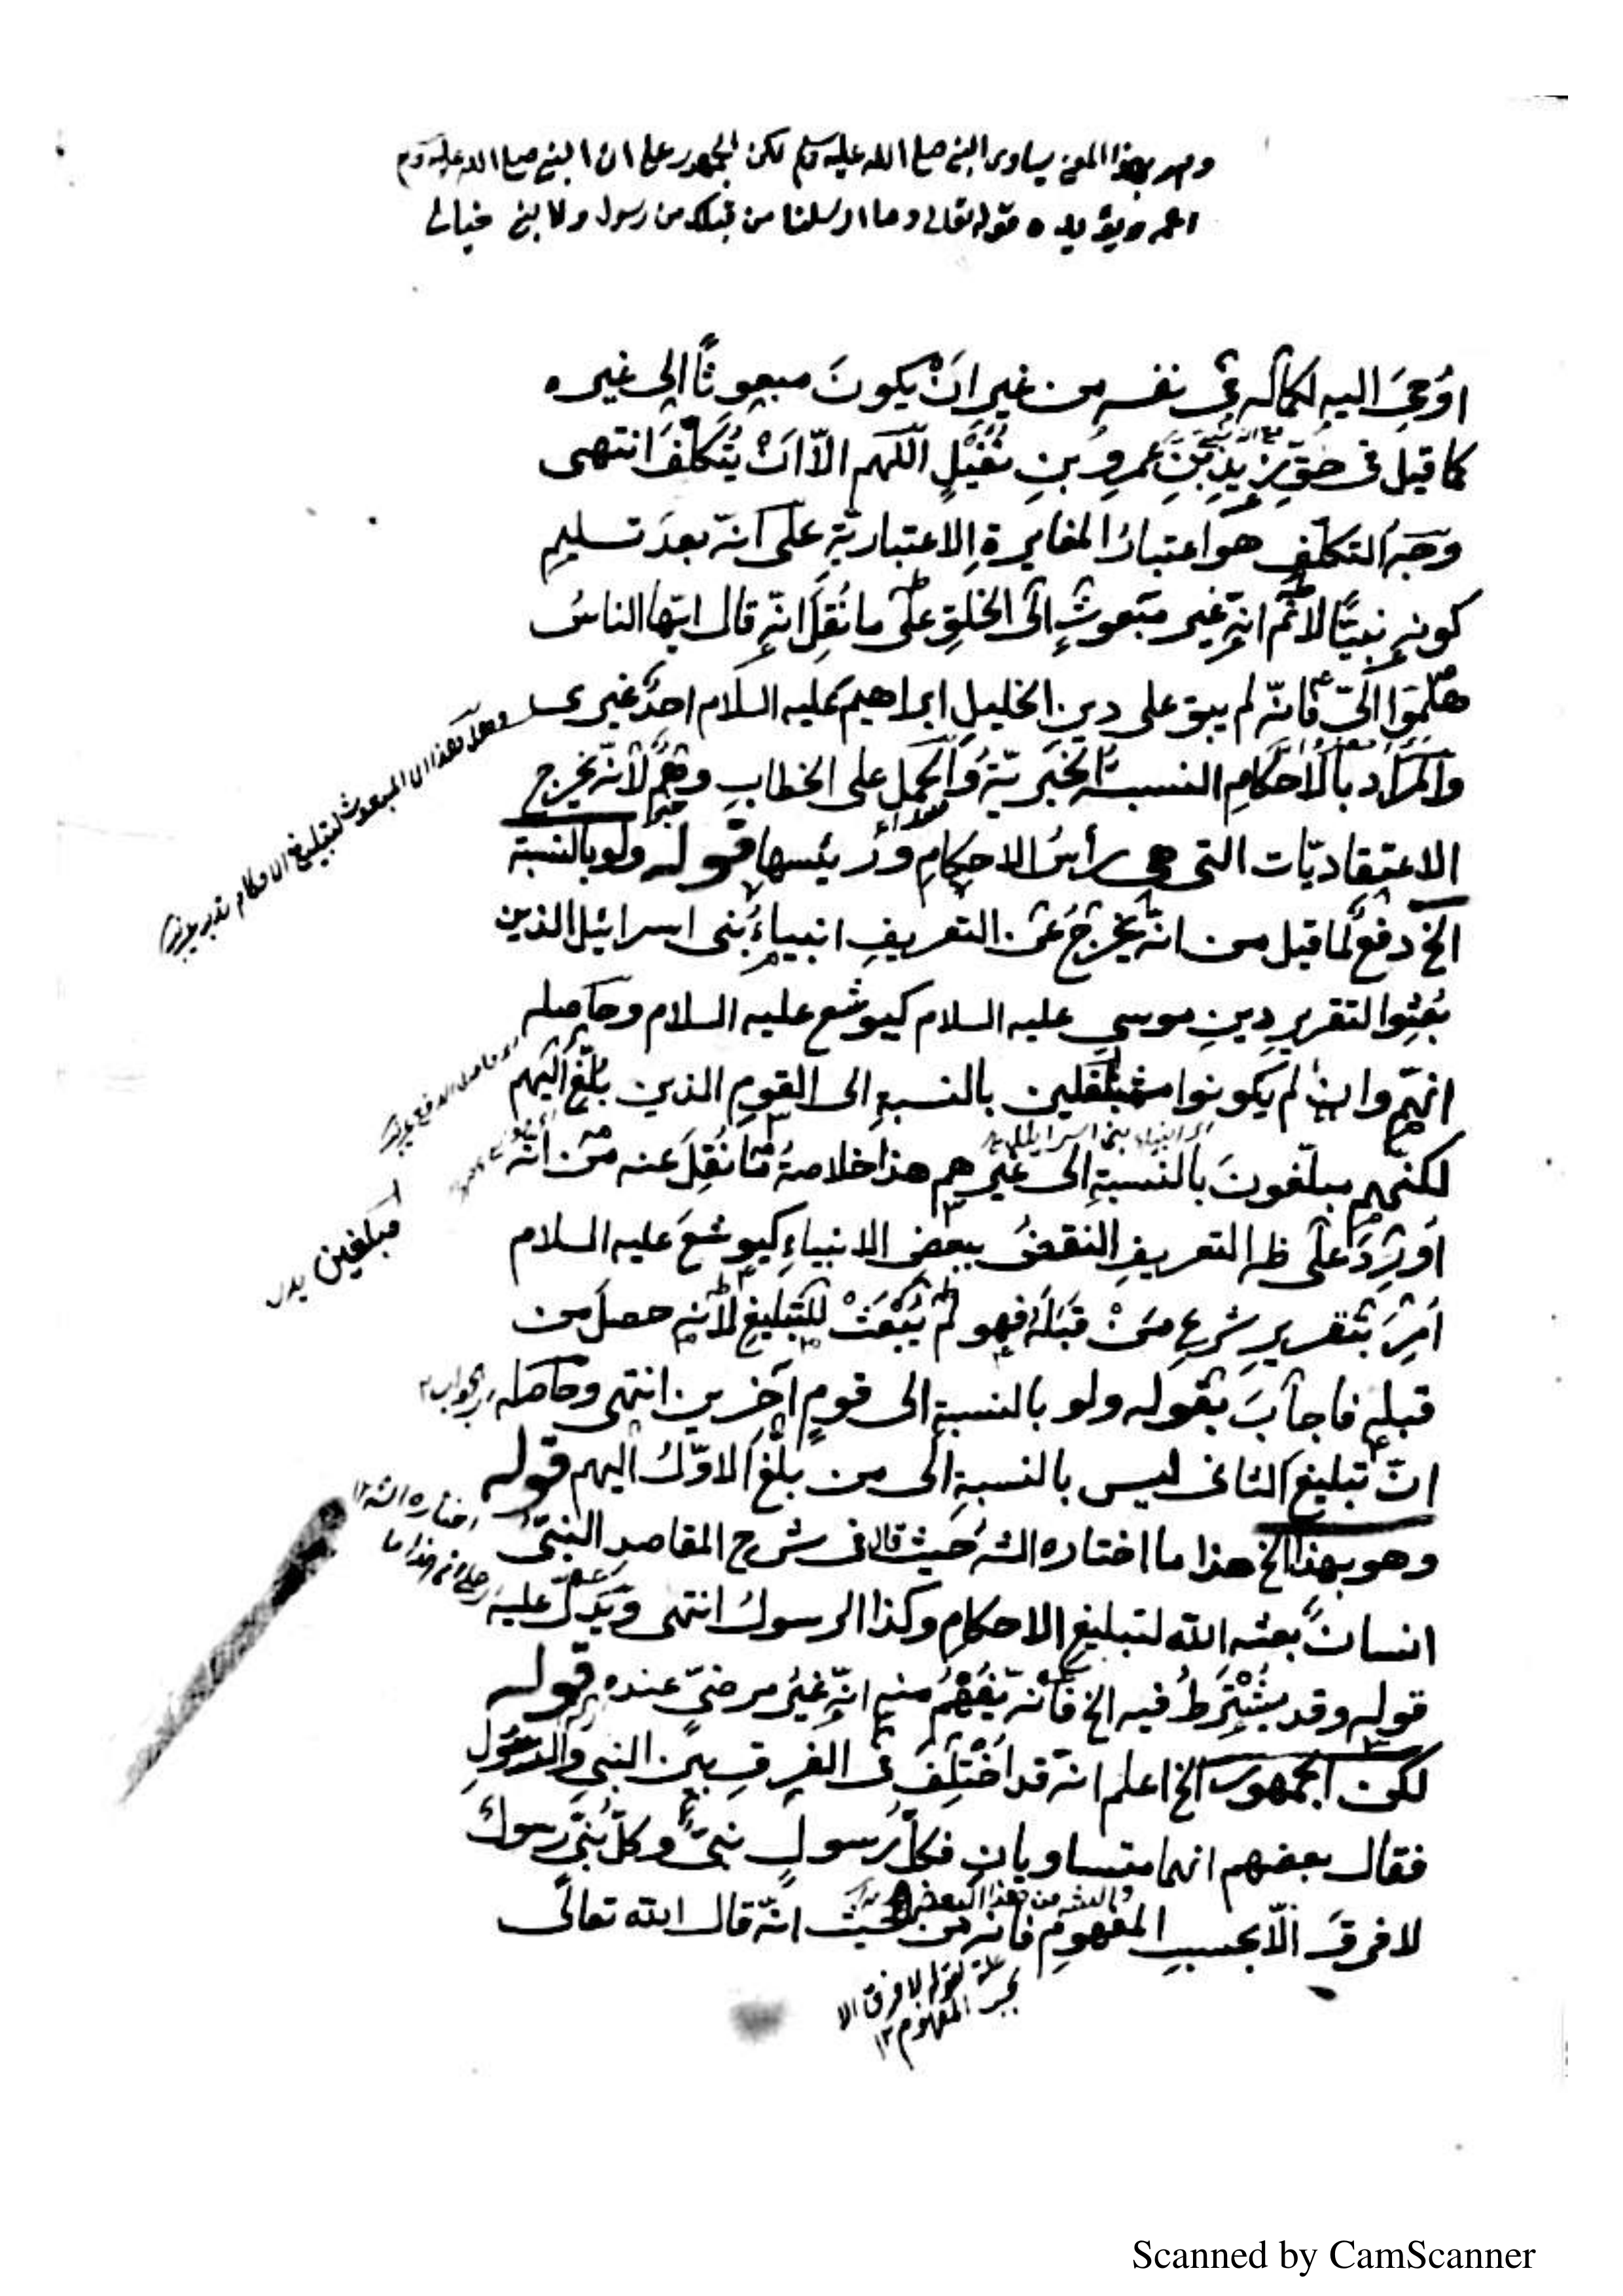 وهو بهذا المعنى يساوى النبى صلى الله عليه وسلم لكن الجمهور على ان النبى صلى الله عليه وسلم
اعم ويؤيده قوله تعالى وما ارسلنا من قبلك من رسول ولا نبى خيالى
اُوحِىَ اليه لكماله فى نفسه من غير اَنْ يكونَ مبعوثًا الى غيره
كما قيل فى حقِّ زيدِ بنِ عمرِو بنِ نُفَيْلٍ اللّهم الّا اَنْ يُتَكلَّفَ انتهى
وَجهُ التكلّفِ هو اعتبارُ المغايرةِ الاعتباريّةِ على انّه بعدَ تسليمِ
كونِه نبيًّا لا نَمَ انّه غير مبعوثٍ الى الخلقِ على ما نُقِلَ انّه قال ايّها الناسُ
هلمّوا الىّ فانّه لم يبق على دينِ الخليلِ ابراهيم عليه السلام احدٌ غيرى
والمرادُ بالاحكامِ النسبةُ الخبريّةُ والحملُ على الخطابِ وهمٌ لانّه يخرج
الاعتقاديّات التى هى رأسُ الاحكامِ ورئيسها قوله ولو بالنسبة
الخ دفعٌ لما قيل من انّه يخرجُ عن التعريفِ انبياءُ بنى اسرائيل الذين
بُعِثوا لتقريرِ دينِ موسى عليه السلام كيوشع عليه السلام وحاصله
انهم وان لم يكونوا مبلّغين بالنسبةِ الى القومِ الذين بلّغ اليهم
لكنهم مبلّغونَ بالنسبةِ الى غيرهم هذا خلاصةُ ما نُقِلَ عنه من انّه
اُورِدَ على ظ التعريفِ النقضُ ببعضِ الانبياءِ كيوشعَ عليه السلام
اُمِرَ بتقريرِ شرعِ مَنْ قبلَه فهو لم يُبْعَثْ للتبليغِ لانّه حصلَ من
قبله فاجابَ بقوله ولو بالنسبة الى قومٍ آخرين انتهى وحاصله
انّ تبليغَ الثانى ليس بالنسبةِ الى من بلّغ الاوّلُ اليهم قوله
وهو بهذا الخ هذا ما اختاره الشه حيث قال فى شرح المقاصد النبىّ
انسانٌ بعثه الله لتبليغِ الاحكامِ وكذا الرسولُ انتهى ويدلّ عليه
قوله وقد يُشْتَرَطُ فيه الخ فانّه يُفْهَمُ منه انّه غيرُ مرضىٍّ عنده قوله
لكن الجمهور الخ اعلم انّه قد اُخْتُلِفَ فى الفرقِ بين النبى والرسولِ
فقال بعضهم انهما متساويان فكلُّ رسولٍ نبىٌّ وكلُّ نبىٍّ رسولٌ
لا فرقَ الّا بحسبِ المفهومِ فانّه من حيث انّه قال الله تعالى
هذا ان المبعوث لتبليغ الاحكام
حاصل الدفع
انبياء بنى اسرائيل
مبلغين بدل
الجواب
اختاره الشه ١٢
من هذا البعض
علة لقوله لا فرق الا
بحسب المفهوم ١٢
Scanned by CamScanner